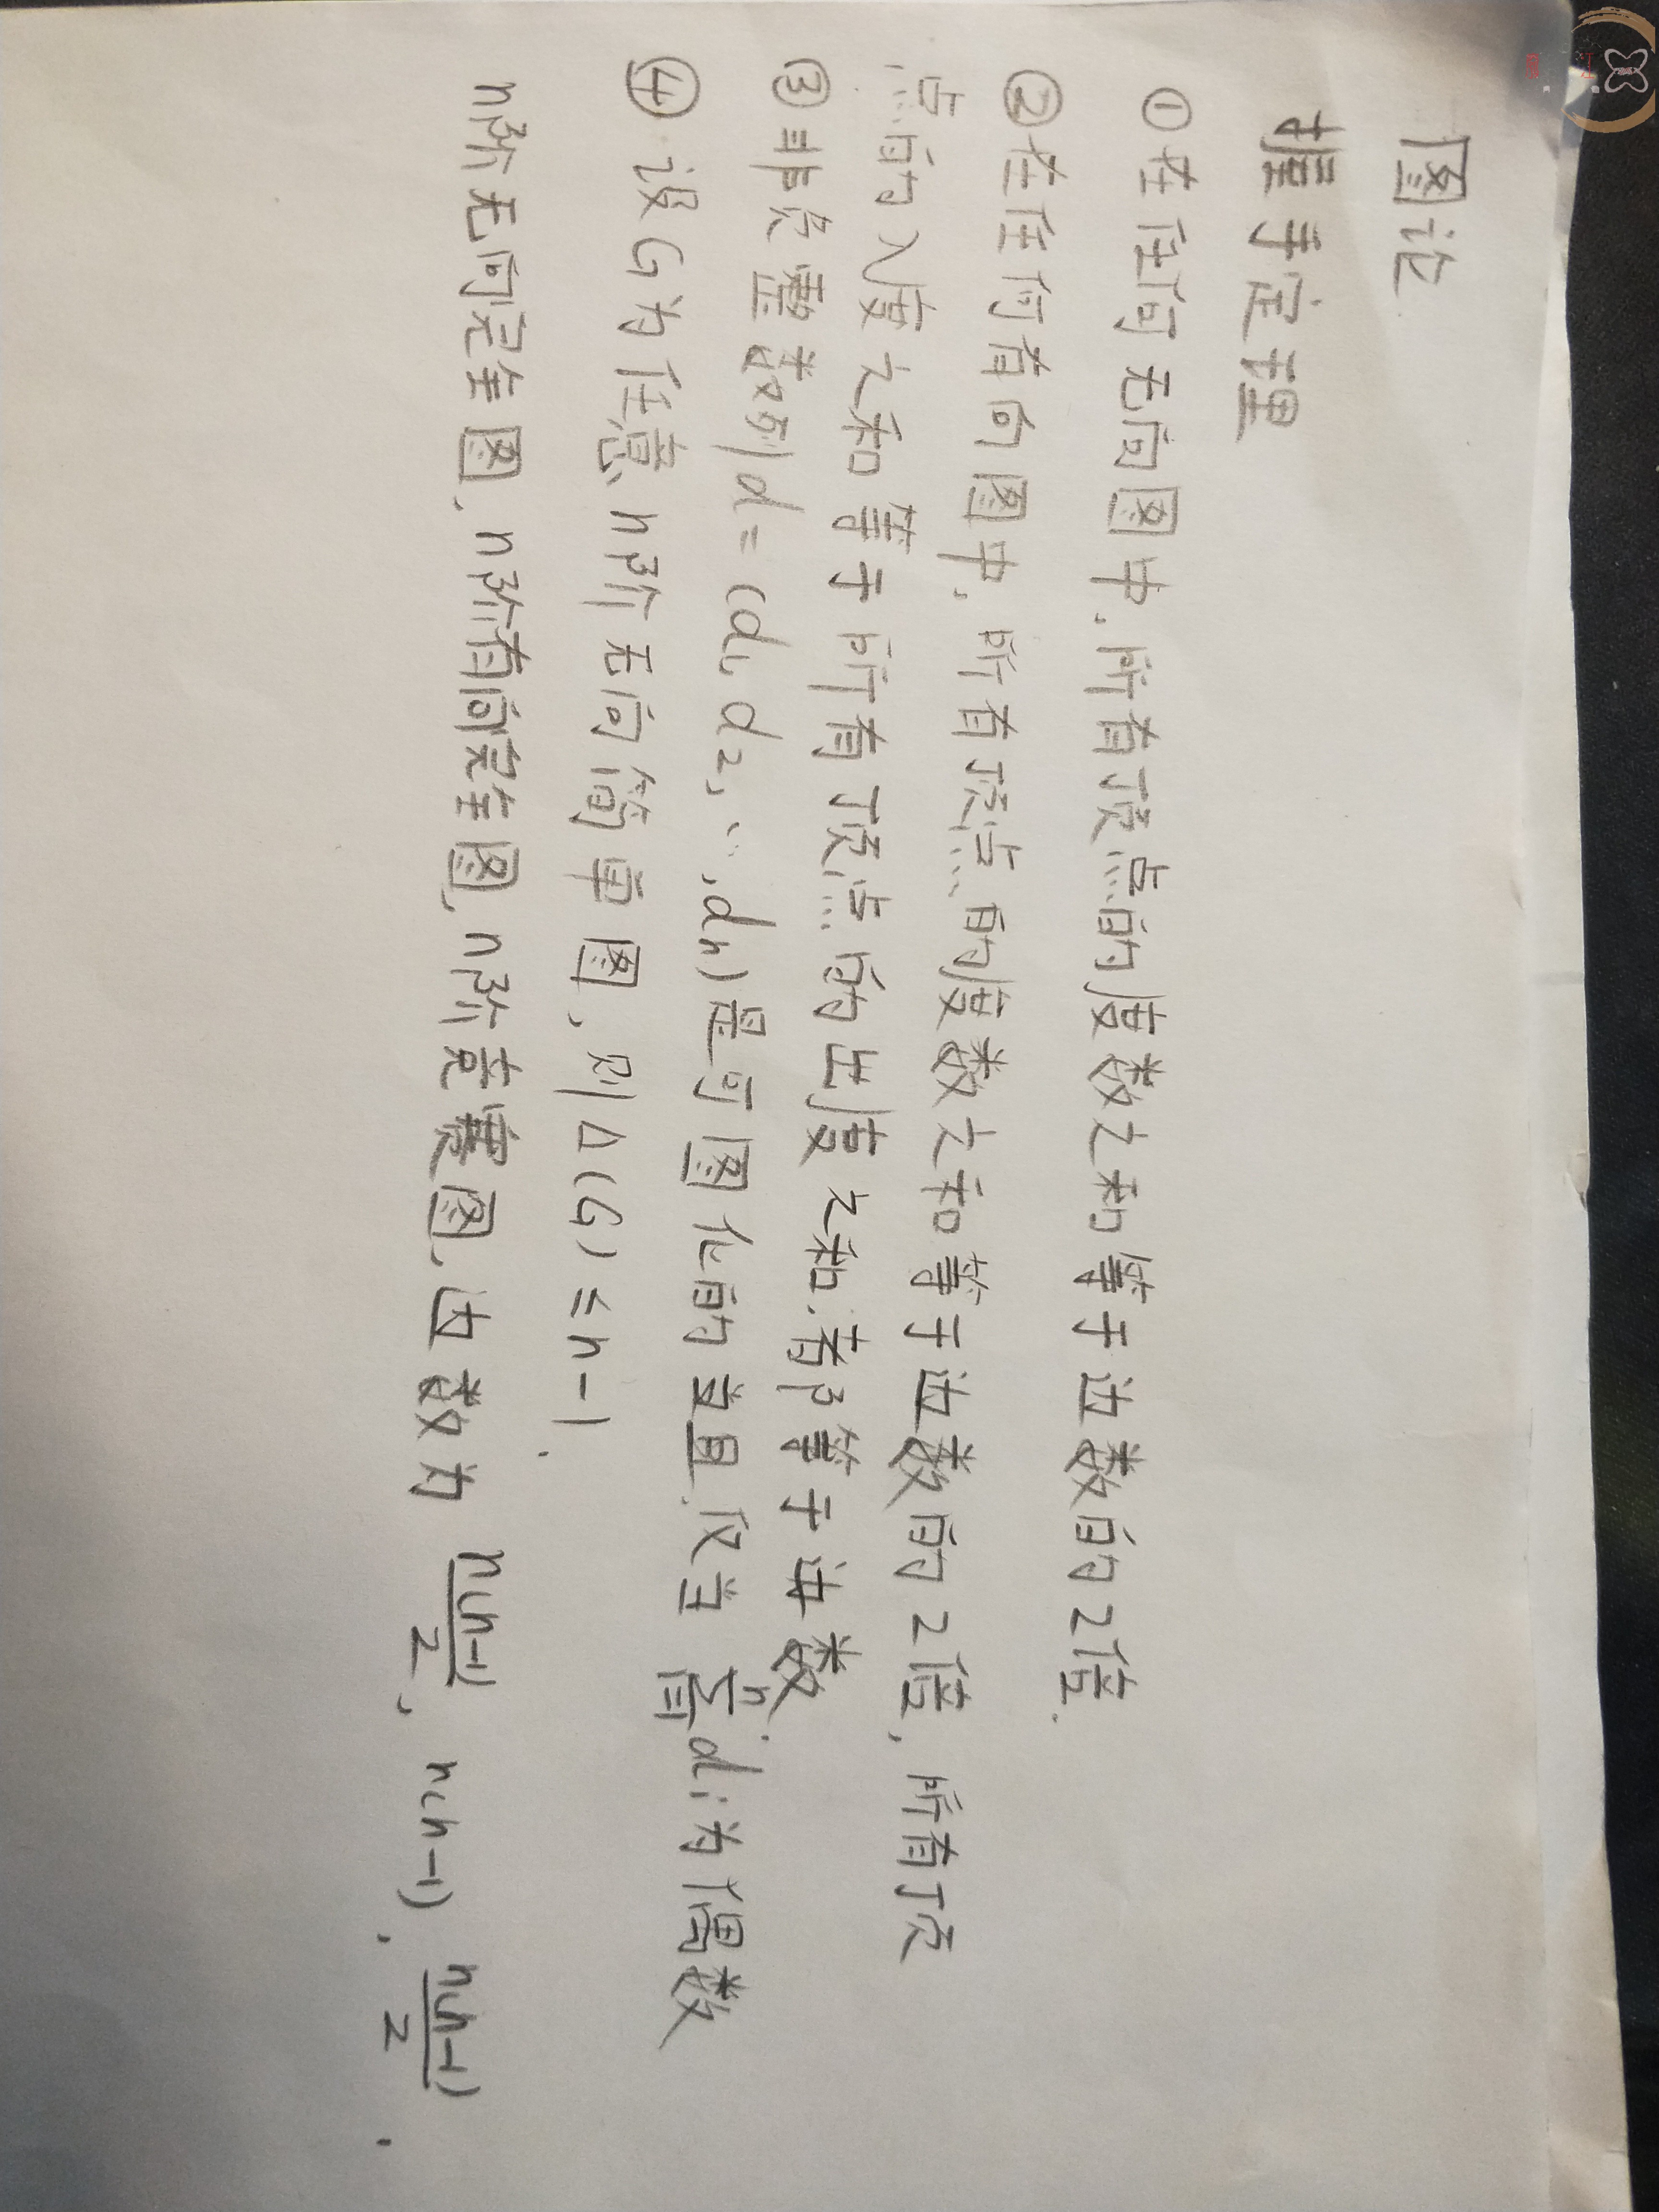 图论
握手定理
①在任何无向图中,所有顶点的度数之和等于边数的2倍.
②在任何有向图中,所有顶点的度数之和等于边数的2倍,所有顶
点的入度之和等于所有顶点的出度之和.都等于边数
③非负整数列d=(d₁,d₂,…,dₙ)是可图化的当且仅当 Σⁿᵢ₌₁dᵢ为偶数
④设G为任意n阶无向简单图,则Δ(G)≤n-1.
n阶无向完全图,n阶有向完全图,n阶竞赛图,边数为 n(n-1)/2, n(n-1), n(n-1)/2.